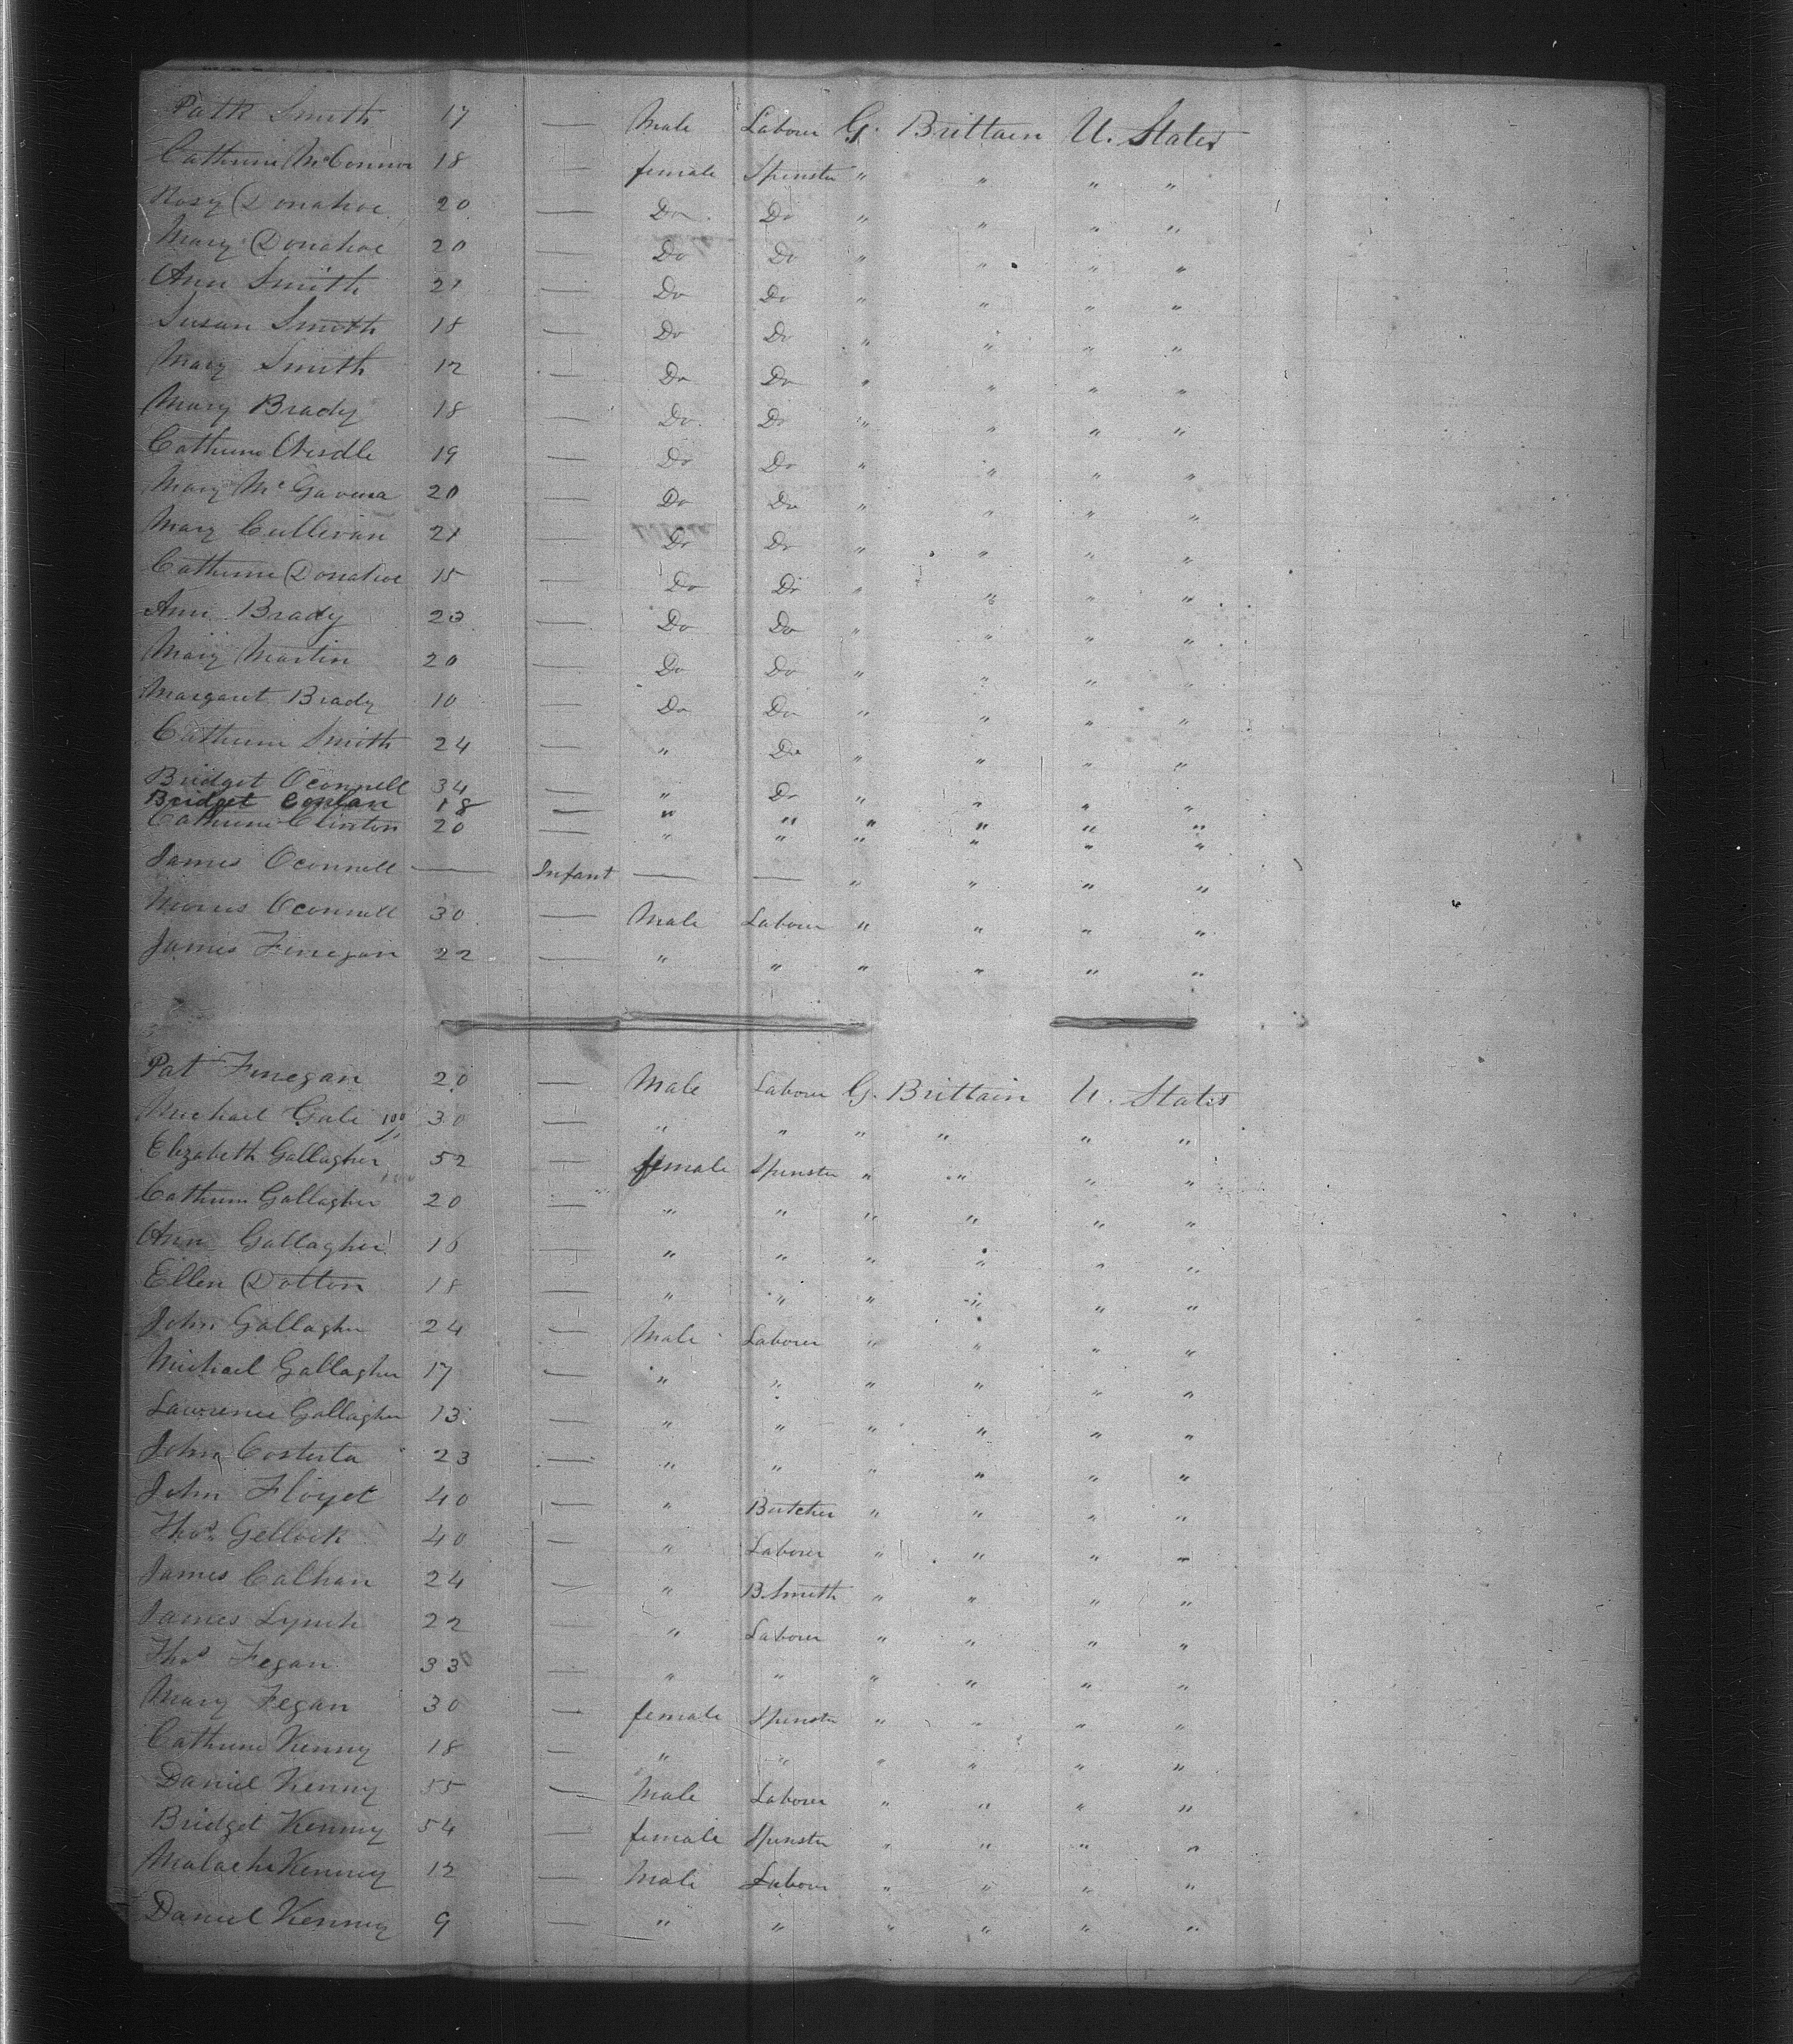 Patk Smith 17 — Male Labourer G. Brittain U. States
Catherine McConnor 18 — female Spinster " " " "
Rosy Donahoe 20 — Do Do " " " "
Mary Donahoe 20 — Do Do " " " "
Ann Smith 21 — Do Do " " " "
Susan Smith 18 — Do Do " " " "
Mary Smith 12 — Do Do " " " "
Mary Brady 18 — Do Do " " " "
Catherine 19 — Do Do " " " "
Mary Mc 20 — Do Do " " " "
Mary Cullivan 21 — Do Do " " " "
Catherine Donahoe 15 — Do Do " " " "
Ann Brady 23 — Do Do " " " "
Mary Martin 20 — Do Do " " " "
Margaret Brady 10 — Do Do " " " "
Catherine Smith 24 — " Do " " " "
Bridget Oconnell 34 — " Do " " " "
Bridget Conlan 18 — " " " " " "
Catherine Clinton 20 — " " " " " "
James Oconnell — Infant — — " " " "
Morris Oconnell 30 — Male Labourer " " " "
James Finegan 22 — " " " " " "
Pat Finegan 20 — Male Labourer G. Brittain U. States
Michael Gale 30 — " " " " " "
Elizabeth Gallagher 52 — female Spinster " " " "
Catherine Gallagher 20 — " " " " " "
Ann Gallagher 16 — " " " " " "
Ellen Dolton 18 — " " " " " "
John Gallagher 24 — Male Labourer " " " "
Michael Gallagher 17 — " " " " " "
Lawrence Gallagher 13 — " " " " " "
John 23 — " " " " " "
John Floyd 40 — " Butcher " " " "
Thos 40 — " Labourer " " " "
James Calhan 24 — " B. Smith " " " "
James Lynch 22 — " Labourer " " " "
Thos Fegan 33 — " " " " " "
Mary Fegan 30 — female Spinster " " " "
Catherine Kenny 18 — " " " " " "
Daniel Kenny 55 — Male Labourer " " " "
Bridget Kenny 54 — female Spinster " " " "
Malachi Kenny 12 — Male Labourer " " " "
Daniel Kenny 9 — " " " " " "